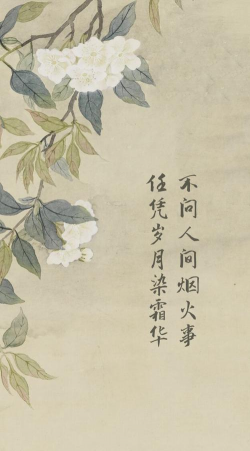 不问人间烟火事
任凭岁月染霜华